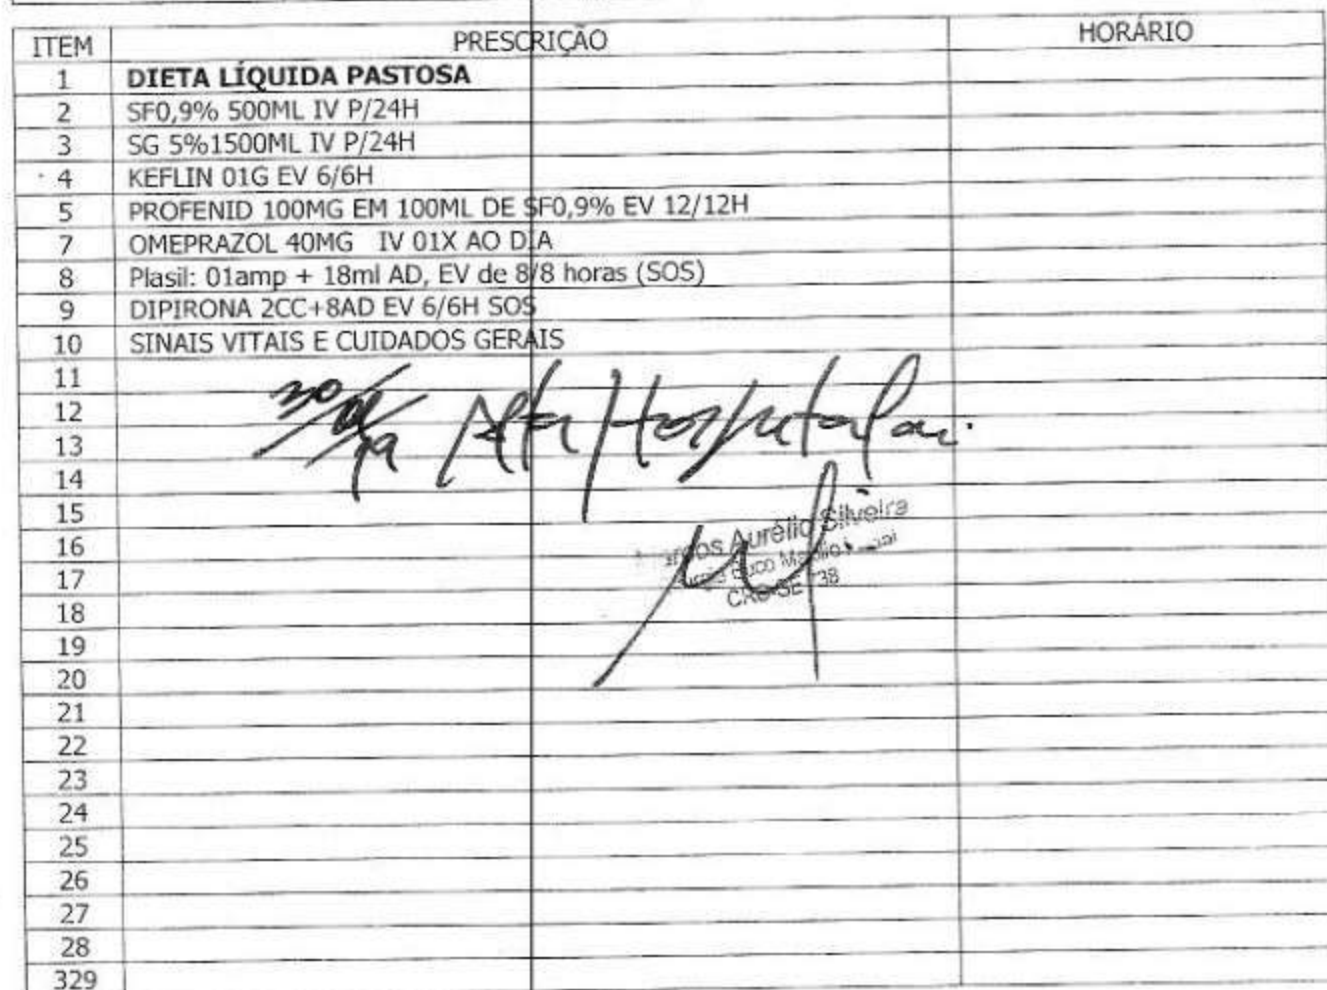 ITEM PRESCRIÇÃO HORÁRIO
1 DIETA LÍQUIDA PASTOSA
2 SF0,9% 500ML IV P/24H
3 SG 5%1500ML IV P/24H
4 KEFLIN 01G EV 6/6H
5 PROFENID 100MG EM 100ML DE SF0,9% EV 12/12H
7 OMEPRAZOL 40MG IV 01X AO DIA
8 Plasil: 01amp + 18ml AD, EV de 8/8 horas (SOS)
9 DIPIRONA 2CC+8AD EV 6/6H SOS
10 SINAIS VITAIS E CUIDADOS GERAIS
11
12 Alta Hospitalar
13
14
15 Aurélio Silveira
16
17 CRO-SE
18
19
20
21
22
23
24
25
26
27
28
329